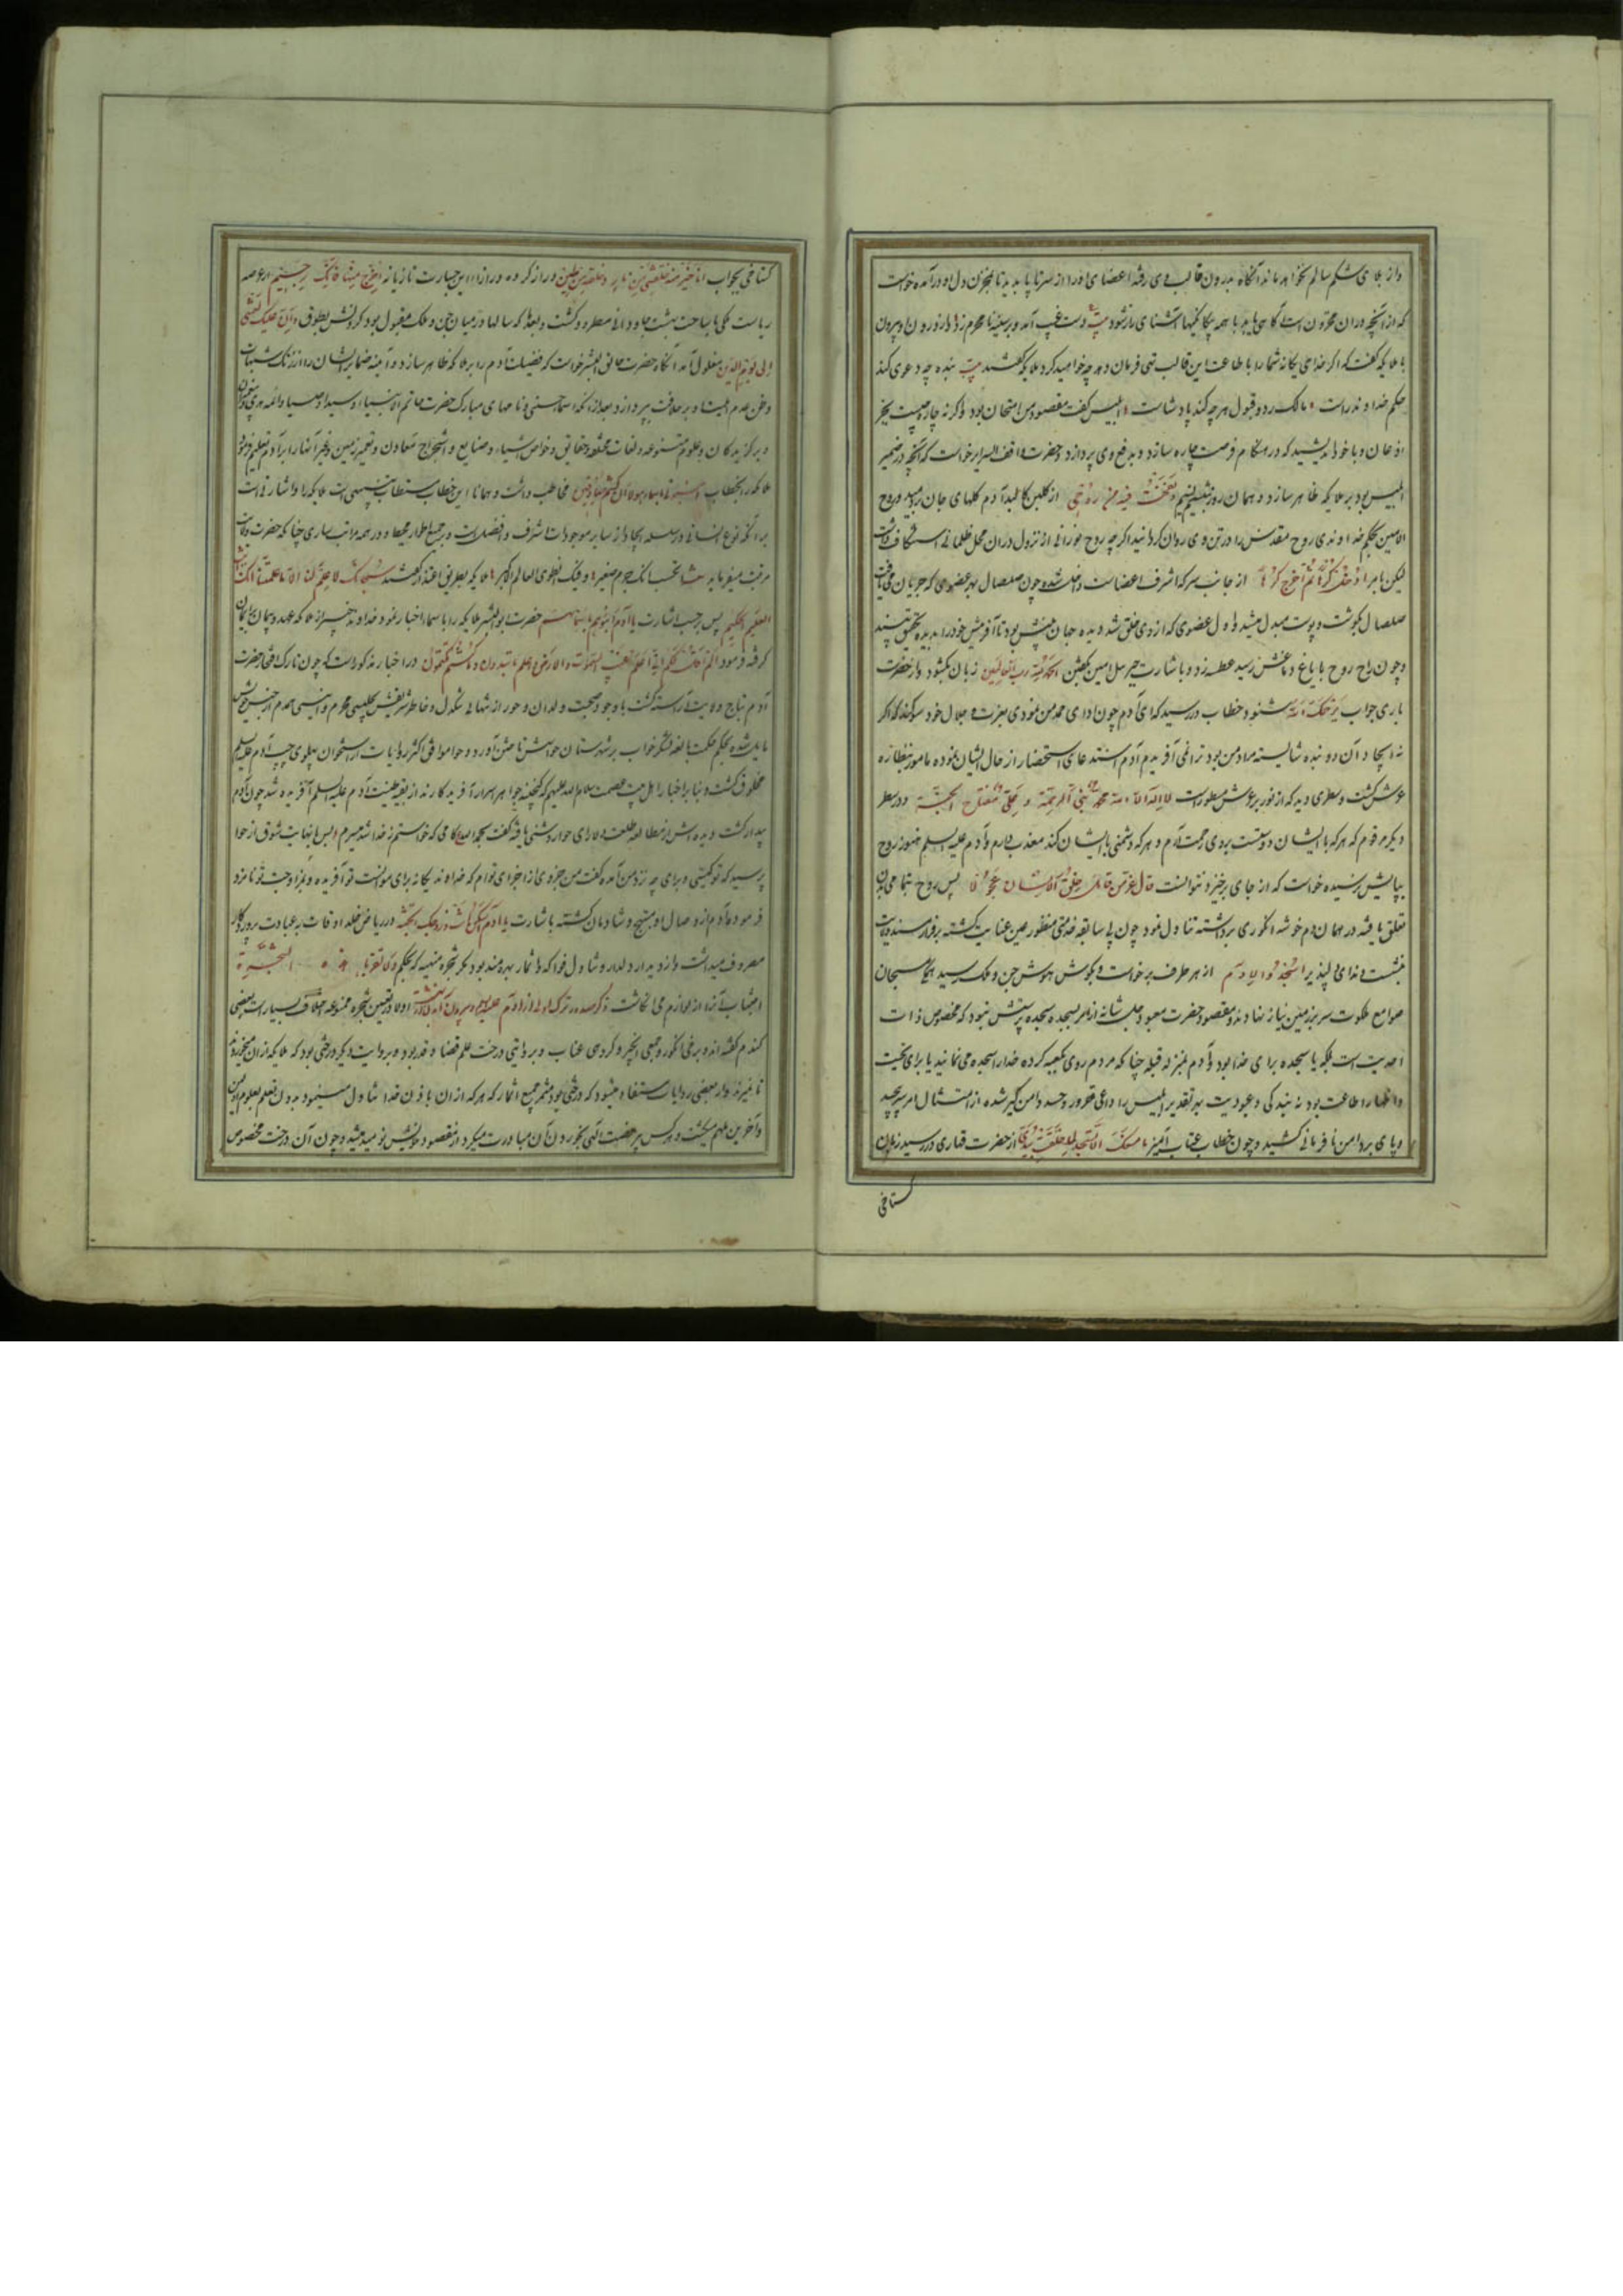 واز بلای شکم سالم نخواهد ماند آنگاه بدرون قالب وی رفته اعضای او را از سر تا پا بدید تا بمخزن دل او درآمده خواست
که از آنچه در آن مخزون است آگاهی یابد با همه بیگانگیها آشنای راز شود دست غیب آمد و بر سینه نامحرم زد از درون او بیرون
با ملایکه گفت که اگر خدای یگانه شما را باطاعت این قالب تهی فرمان دهد چه خواهید کرد ملایکه گفتند بیت بنده چه دعوی کند
حکم خداوند راست مالک رد و قبول هر چه کند پادشاست ابلیس گفت مقصود من امتحان بود واگرنه چاره چیست بجز
اذعان و با خود اندیشید که در هنگام فرصت چاره سازد و بدفع وی پردازد و حضرت واقف السرایر خواست که آنچه در ضمیر
ابلیس بود بر ملایکه ظاهر سازد و همان روز نسیم نفخت فیه من روحی از گلبن کالبد آدم گلهای جان بردمید و روح
الامین بحکم خداوندی روح مقدس را در تن وی روان گردانید اگرچه روح نورانی از نزول در آن محل ظلمانی استنکاف داشت
لیکن بامر از جانب سر که اشرف اعضاست داخل شده چون صلصال بهر عضوی که جریان می یافت
صلصال بگوشت و پوست مبدل میشد و اول عضوی که از وی خلق شد دیده جهان بینش بود تا آفرینش خود را بدیده تحقیق بیند
و چون راح روح بایاغ دماغش رسید عطسه زد و باشارت جبرییل امین بگفتن الحمد لله رب العالمین زبان بگشود و از حضرت
باری جواب یرحمک الله شنود و خطاب در رسید که ای آدم چون ادای محمد من نمودی بعزت و جلال خود سوگند که اگر
نه ایجاد آن دو بنده شایسته مراد من بود ترا نمی آفریدم آدم استدعای استحضار از حال ایشان نموده مامور بنظاره
عرش گشت و سطری دید که از نور بر عرش مسطور است لا اله الا الله محمد نبی الرحمة و علی مفتاح الجنة و در سطر
دیگر مرقوم که هر که با ایشان دوستست بروی رحمت آرم و هر که دشمنی با ایشان کند معذب دارم و آدم علیه السلم هنوز روح
بپایش نرسیده خواست که از جای برخیزد نتوانست قال عز من قائل خلق الانسان عجولا پس روح بتمامی بدن
تعلق یافته در همان دم خوشه انگوری برداشته تناول نمود چون بی سابقه خدمتی منظور عین عنایت گشته بر فراز مسند ولایت
بنشست و ندای دلپذیر اسجدوا لادم از هر طرف برخاست و بگوش هوش جن و ملک رسید همه مسبحان
صوامع ملکوت سر بر زمین نیاز نهادند و مقصود حضرت معبود جلت شانه از امر بسجده سجده پرستش نبود که مخصوص ذات
احدیت است بلکه یا سجده برای خدا بود و آدم بمنزله قبله چنانکه مردم روی بکعبه کرده خدا را سجده می نمایند یا برای تحیت
و اظهار اطاعت بود نه بندگی و عبودیت بهر تقدیر ابلیس را داعی غرور و حسد دامن گیر شده از امتثال امر سر پیچید
و پای بر دامن نافرمانی کشید و چون خطاب عتاب آمیز ما منعک الا تسجد لما خلقت بیدی از حضرت قهاری در رسید زبان
ستاخی
گستاخی بجواب انا خیر منه خلقتنی من نار و خلقته من طین دراز کرده در ازای این جسارت تازیانه اخرج منها فانک رجیم از عرصه
ریاست ملکی تا ساحت بهشت جاودانی مطرود گشت و بعد از آنکه سالها در میان جن و ملک مقبول بود گردنش بطوق و ان علیک لعنتی
الی یوم الدین مغلول آمد آنگاه حضرت خالق البشر خواست که فضیلت آدم را بر ملایکه ظاهر سازد و آینه ضمایر ایشان را از زنک شبهات
و ظن عدم لیاقت او بر خلافت بپردازد بعد از آنکه اسماء حسنی و نامهای مبارک حضرت خاتم الانبیاء و سید اوصیا و ائمه هدی
و برگزیدگان و علوم متنوعه و لغات مختلفه و حقایق و خواص اشیاء و صنایع و استخراج معادن و تعمیر زمین و غیر آنها را برآدم تعلیم فرمود
ملایکه را بخطاب انبئونی باسماء هولاء ان کنتم صادقین مخاطب داشت و همانا این خطاب مستطاب تنبیهی است ملایکه را و اشارتی است
بر آنکه نوع انسانی در سلسله ایجاد از سایر موجودات اشرف و افضل است و بجمیع اطوار محیط و در همه مراتب ساری چنانکه حضرت ولایت
مرتبت میفرماید اتحسب انک جرم صغیر و فیک انطوی العالم الاکبر ملایکه بطریق اعتذار گفتند سبحانک لا علم لنا الا ما علمتنا انک انت
العلیم الحکیم پس حسب اشارت یا آدم انبئهم باسمائهم حضرت ابوالبشر ملایکه را باسماء اخبار نمود و خداوند خبیر از ملایکه عهد و پیمان
گرفته فرمود الم اقل لکم انی اعلم غیب السموات والارض واعلم ما تبدون و ما کنتم تکتمون در اخبار مذکور است که چون تارک افتخار حضرت
آدم بتاج ولایت آراسته گشت با وجود صحبت ولدان و حور از تنهایی تنگدل و خاطر شریفش بجلیسی محرم و انیسی همدم از جنس خویش
مایل شده بحکم حکمت بالغه لشکر خواب بر شهرستان حواسش تاختن آورد و حوا موافق اکثر روایات از استخوان پهلوی چپ آدم علیه السلم
مخلوق گشت و بنا بر اخبار اهل بیت عصمت سلام الله علیهم که گنجینه جواهر اسرار آفریدگارند از بقیه طینت آدم علیه السلم آفریده شد چون آدم
بیدار گشت و دیده اش از مطالعه طلعت دلارای حوا روشنی یافته گفت بحمد الله کامی که خواستم ز خدا شد میسرم و پس با نهایت شوق از حوا
پرسید که تو کیستی و برای چه نزد من آمده گفت من جزوی از اجزای توام که خداوند یگانه برای موانست تو آفریده و بمزاوجت تو نامزد
فرموده آدم از وصال او مبتهج و شادمان گشته باشارت یا آدم اسکن انت و زوجک الجنة در ریاض خلد اوقات به عبادت پروردگار
مصروف میداشت و از دیدار دلدار و تناول فواکه و اثمار بهره مند بود مگر شجره منهیه که بحکم و لا تقربا هذه الشجرة
اجتناب آنرا از لوازم می انگاشت ذکر صدور ترک اولی از آدم علیه السلم و بیرون آمدن از بهشت اولا در تعیین شجره ممنوعه اختلاف بسیار است بعضی
گندم گفته اند و برخی انگور و جمعی انجیر و گروهی عناب و بروایتی درخت علم قضا و قدر بود و بروایت دیگر درختی بود که ملایکه از آن میخوردند
تا نمیرند و از بعضی روایات مستفاد میشود که درختی بود مثمر جمیع اثمار که هر که از آن باذن خدا تناول مینمود بدون تعلم بعلوم اولین
و آخرین ملهم میگشت و هر کس بی رخصت الهی بخوردن آن مبادرت میکرد از مقصود خویش نومید میشد و چون آن درخت مخصوص